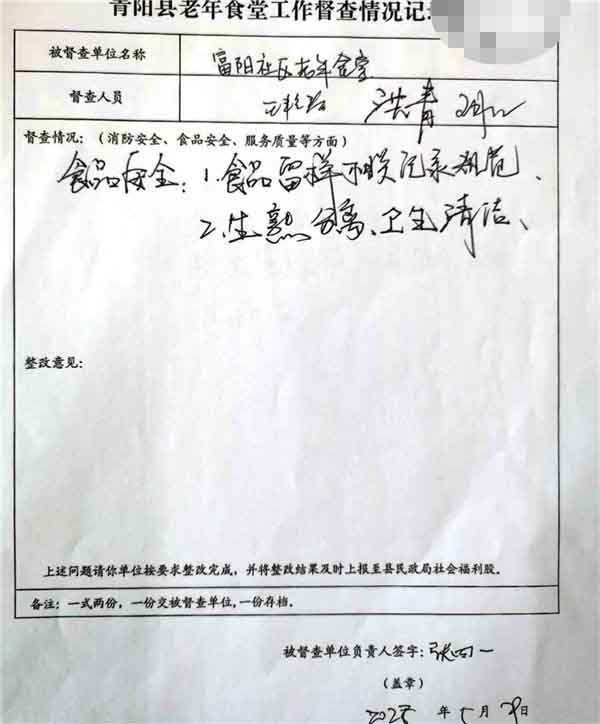 青阳县老年食堂工作督查情况记
被督查单位名称 富阳社区老年食堂
督查人员 洪青
督查情况：（消防安全、食品安全、服务质量等方面）
食品安全：1.食品留样 记录规范、
2、生熟分离、卫生清洁、
整改意见：
上述问题请你单位按要求整改完成，并将整改结果及时上报至县民政局社会福利股。
备注：一式两份，一份交被督查单位,一份存档。
被督查单位负责人签字：张四一
（盖章）
年5月 日